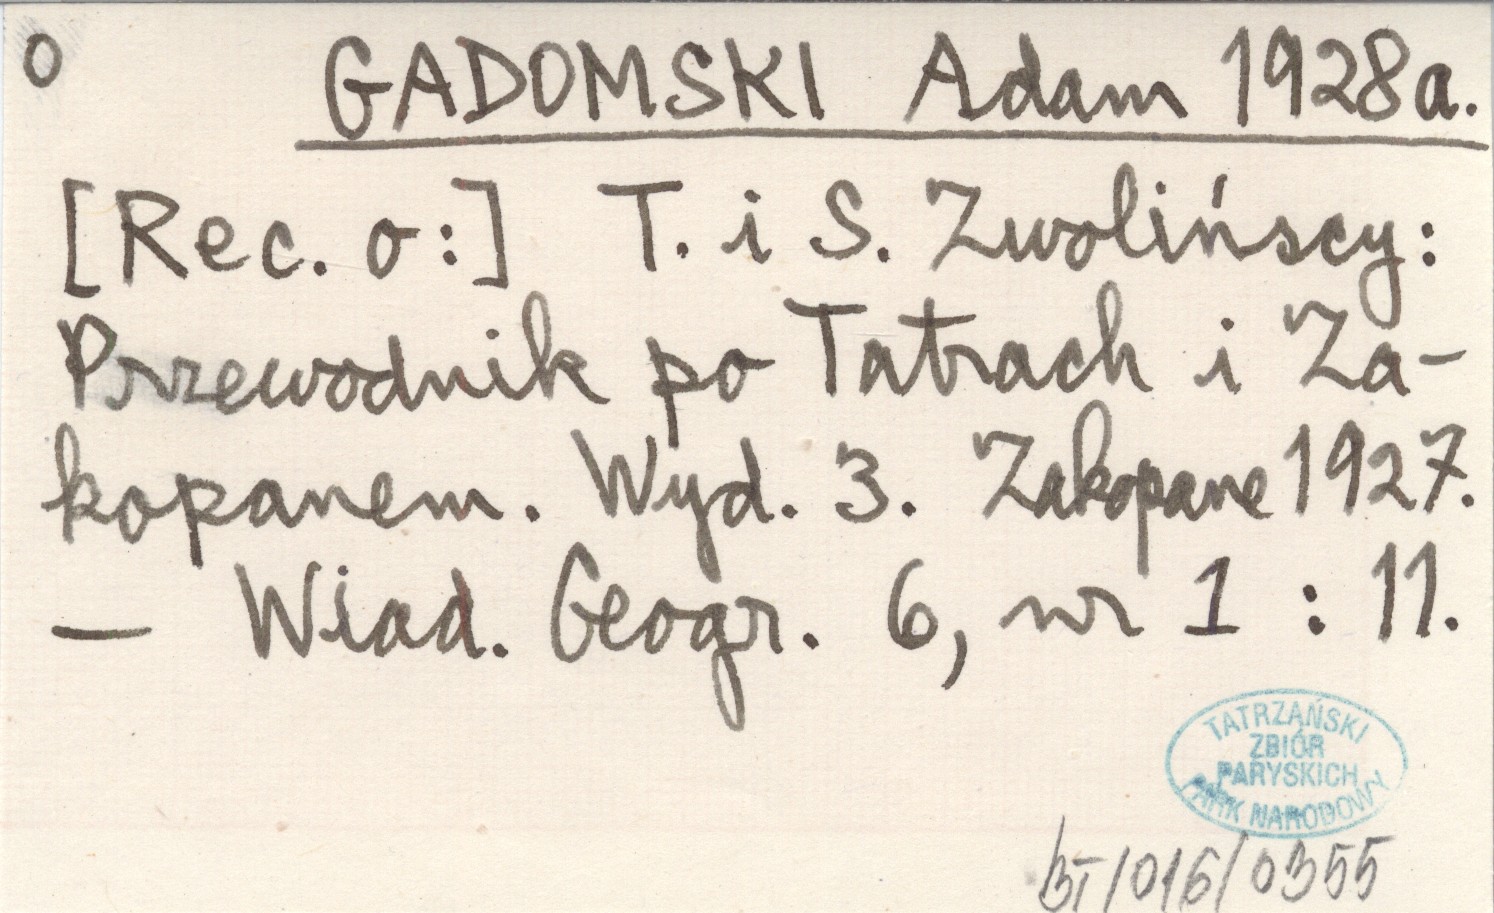 o
GADOMSKI Adam 1928a.
[Rec. o:] T. i S. Zwolińscy:
Przewodnik po Tatrach i Za-
kopanem. Wyd. 3. Zakopane 1927.
— Wiad. Geogr. 6, nr 1 : 11.
TATRZAŃSKI
ZBIÓR
PARYSKICH
PARK NARODOWY
BT/016/0355